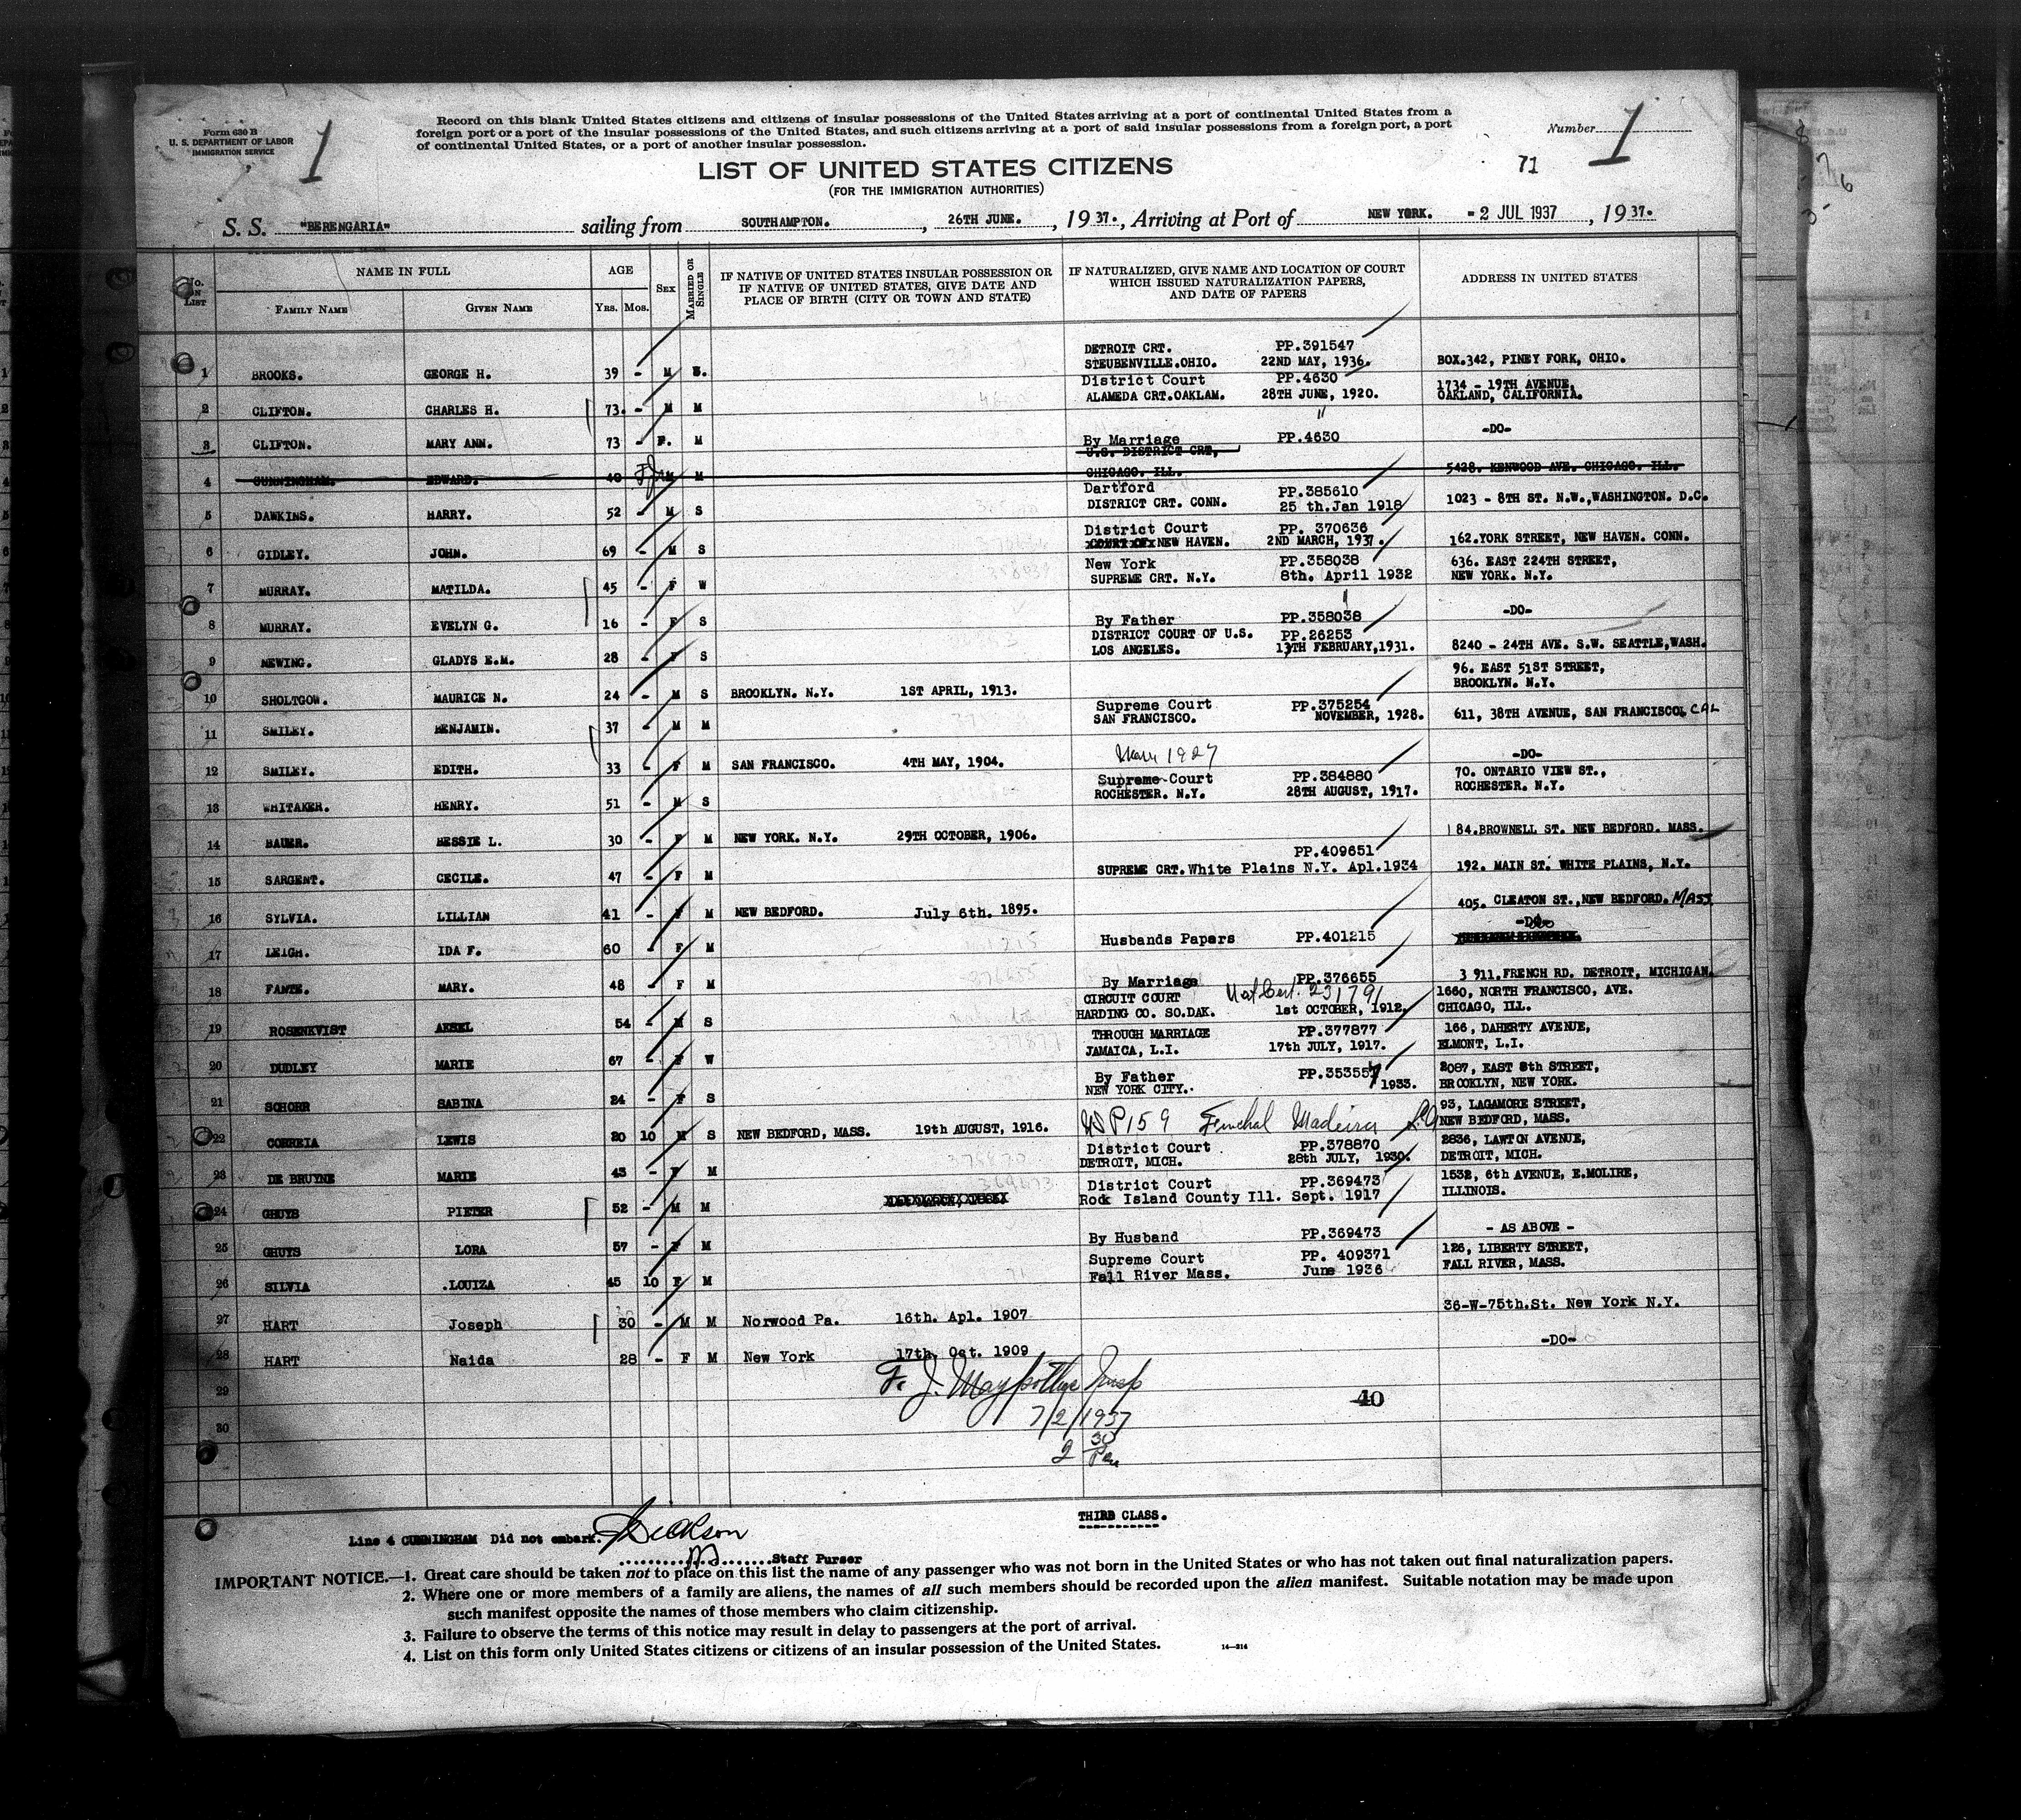 Form 630 B
U. S. DEPARTMENT OF LABOR
IMMIGRATION SERVICE
1
Record on this blank United States citizens and citizens of insular possessions of the United States arriving at a port of continental United States from a
foreign port or a port of the insular possessions of the United States, and such citizens arriving at a port of said insular possessions from a foreign port, a port
of continental United States, or a port of another insular possession.
Number 1
71
LIST OF UNITED STATES CITIZENS
(FOR THE IMMIGRATION AUTHORITIES)
S. S. "BERENGARIA" sailing from SOUTHAMPTON. , 26TH JUNE. , 1937., Arriving at Port of NEW YORK. - 2 JUL 1937 , 1937.
No. ON LIST
NAME IN FULL
FAMILY NAME
GIVEN NAME
AGE
YRS. MOS.
SEX
MARRIED OR SINGLE
IF NATIVE OF UNITED STATES INSULAR POSSESSION OR
IF NATIVE OF UNITED STATES, GIVE DATE AND
PLACE OF BIRTH (CITY OR TOWN AND STATE)
IF NATURALIZED, GIVE NAME AND LOCATION OF COURT
WHICH ISSUED NATURALIZATION PAPERS,
AND DATE OF PAPERS
ADDRESS IN UNITED STATES
DETROIT CRT. PP.391547
1 BROOKS. GEORGE H. 39 - M S. STEUBENVILLE.OHIO. 22ND MAY, 1936. BOX.342, PINEY FORK, OHIO.
District Court PP.4630 1734 - 19TH AVENUE,
2 CLIFTON. CHARLES H. 73. - M M ALAMEDA CRT.OAKLAM. 28TH JUNE, 1920. OAKLAND, CALIFORNIA.
"
3 CLIFTON. MARY ANN. 73 - F. M By Marriage PP.4630 -DO-
U.S. DISTRICT CRT,
4 CUNNINGHAM. EDWARD. 40 M M CHICAGO. ILL. 5428. KENWOOD AVE. CHICAGO. ILL.
Dartford PP.385610
5 DAWKINS. HARRY. 52 - M S DISTRICT CRT. CONN. 25 th.Jan 1918 1023 - 8TH ST. N.W.,WASHINGTON. D.C.
District Court PP. 370636
6 GIDLEY. JOHN. 69 - M S NEW HAVEN. 2ND MARCH, 1937. 162.YORK STREET, NEW HAVEN. CONN.
New York PP.358038 636. EAST 224TH STREET,
7 MURRAY. MATILDA. 45 - F W SUPREME CRT. N.Y. 8th. April 1932 NEW YORK. N.Y.
"
8 MURRAY. EVELYN G. 16 - F S By Father PP.358038 -DO-
DISTRICT COURT OF U.S. PP.26253
9 NEWING. GLADYS E.M. 28 - F S LOS ANGELES. 13TH FEBRUARY,1931. 8240 - 24TH AVE. S.W. SEATTLE,WASH.
96. EAST 51ST STREET,
10 SHOLTGOW. MAURICE N. 24 - M S BROOKLYN. N.Y. 1ST APRIL, 1913. BROOKLYN. N.Y.
Supreme Court PP.375254
11 SMILEY. BENJAMIN. 37 - M M SAN FRANCISCO. NOVEMBER, 1928. 611, 38TH AVENUE, SAN FRANCISCO, CAL
1927
12 SMILEY. EDITH. 33 - F M SAN FRANCISCO. 4TH MAY, 1904. -DO-
Supreme Court PP.384880 70. ONTARIO VIEW ST.,
13 WHITAKER. HENRY. 51 - M S ROCHESTER. N.Y. 28TH AUGUST, 1917. ROCHESTER. N.Y.
14 BAUER. BESSIE L. 30 - F M NEW YORK. N.Y. 29TH OCTOBER, 1906. 184.BROWNELL ST. NEW BEDFORD. MASS.
PP.409651
15 SARGENT. CECILE. 47 - F M SUPREME CRT.White Plains N.Y. Apl.1934 192. MAIN ST. WHITE PLAINS, N.Y.
16 SYLVIA. LILLIAN 41 - F M NEW BEDFORD. July 6th. 1895. 405. CLEATON ST.,NEW BEDFORD. MASS
17 LEIGH. IDA F. 60 - F M Husbands Papers PP.401215 -DO-
18 FANTE. MARY. 48 - F M By Marriage PP.376655 3 911.FRENCH RD. DETROIT, MICHIGAN.
CIRCUIT COURT Nat Cert. 231791 1660, NORTH FRANCISCO, AVE.
19 ROSENKVIST AKSEL 54 - M S HARDING CO. SO.DAK. 1st OCTOBER, 1912. CHICAGO, ILL.
THROUGH MARRIAGE PP.377877 166, DAHERTY AVENUE,
20 DUDLEY MARIE 67 - F W JAMAICA, L.I. 17th JULY, 1917. ELMONT, L.I.
By Father PP.353557 2087, EAST 8th STREET,
21 SCHORR SABINA 24 - F S NEW YORK CITY. 1933. BROOKLYN, NEW YORK.
93, LAGAMORE STREET,
22 CORREIA LEWIS 20 10 M S NEW BEDFORD, MASS. 19th AUGUST, 1916. P159 Funchal Madeira NEW BEDFORD, MASS.
District Court PP.378870 2836, LAWTON AVENUE,
23 DE BRUYNE MARIE 43 - F M DETROIT, MICH. 28th JULY, 1930. DETROIT, MICH.
District Court PP.369473 1532, 6th AVENUE, E.MOLIRE,
24 GHUYS PIETER 52 - M M Rock Island County Ill. Sept. 1917 ILLINOIS.
25 GHUYS LORA 57 - F M By Husband PP.369473 - AS ABOVE -
Supreme Court PP. 409371 126, LIBERTY STREET,
26 SILVIA .LOUIZA 45 10 F M Fall River Mass. June 1936 FALL RIVER, MASS.
27 HART Joseph 30 - M M Norwood Pa. 16th. Apl. 1907 36-W-75th.St. New York N.Y.
28 HART Naida 28 - F M New York 17th. Oct. 1909 -DO-
29
F. J. Insp
40
7/2/1937
30
2 30
THIRD CLASS.
Line 4 CUNNINGHAM Did not embark.
Staff Purser
IMPORTANT NOTICE.—1. Great care should be taken not to place on this list the name of any passenger who was not born in the United States or who has not taken out final naturalization papers.
2. Where one or more members of a family are aliens, the names of all such members should be recorded upon the alien manifest. Suitable notation may be made upon
such manifest opposite the names of those members who claim citizenship.
3. Failure to observe the terms of this notice may result in delay to passengers at the port of arrival.
4. List on this form only United States citizens or citizens of an insular possession of the United States.
14—214